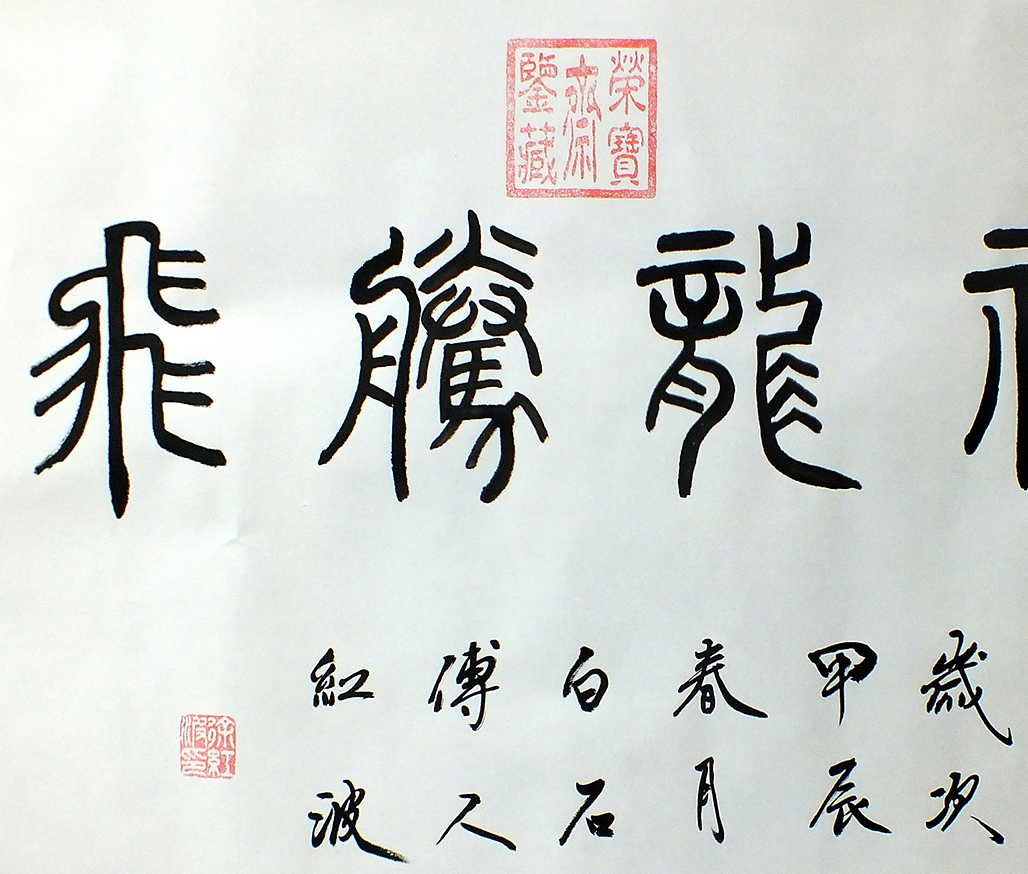 榮寶
齋
鑒藏
龍騰飛
歲次
甲辰
春月
白石
傳人
紅波
徐紅
波印